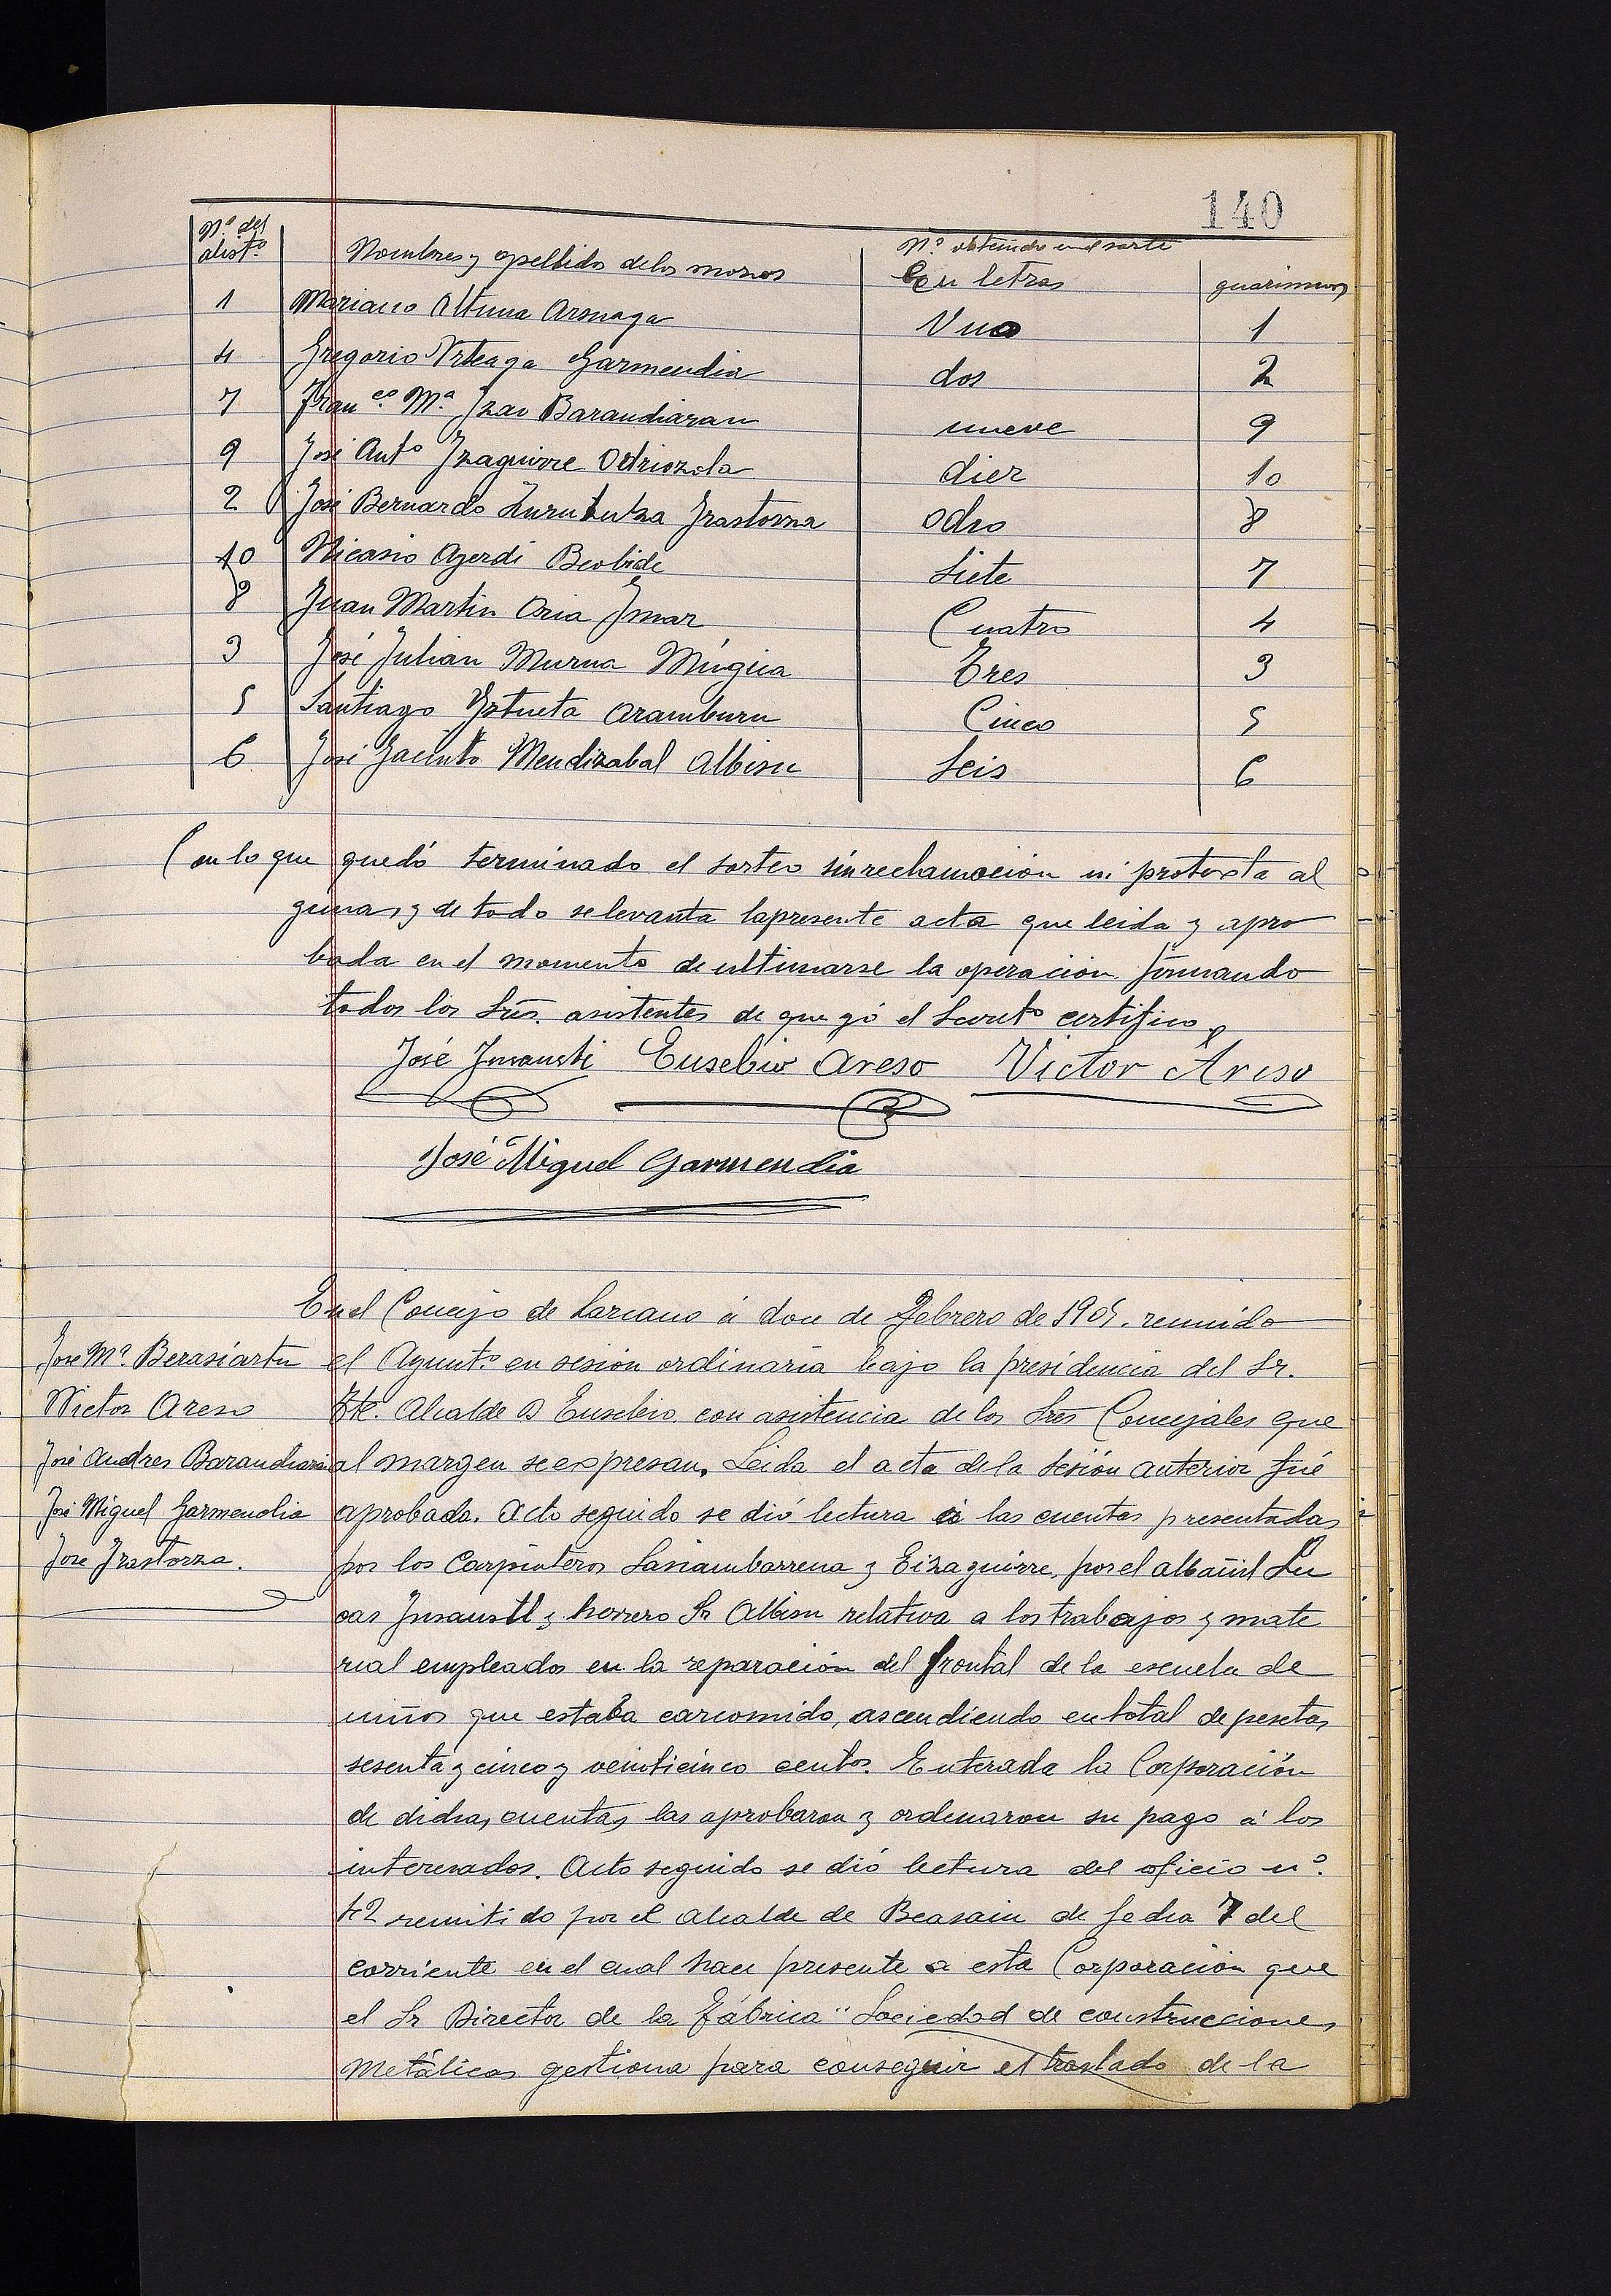 140
Nº del alistº | Nombres y apellidos de los mozos | Nº obtenido en el sorteo
En letras | guarismos
1 | Mariano Altuna Arsuaga | Uno | 1
4 | Gregorio Urteaga Garmendia | dos | 2
7 | Franco Mª Izao Barandiaran | nueve | 9
9 | José Antº Izaguirre Odriozola | diez | 10
2 | José Bernardo Zurutuza Irastorza | Ocho | 8
10 | Nicasio Ayerdi Beobide | Siete | 7
8 | Juan Martin Oria | Cuatro | 4
3 | José Julian Murua Múgica | Tres | 3
5 | Santiago Yztueta Aramburu | Cinco | 5
6 | José Jacinto Mendizabal Albisu | Seis | 6
Con lo que quedó terminado el sorteo sin reclamación ni protesta al
guna, y de todo se levanta la presente acta que leida y apro
bada en el momento de ultimarse la operación firmando
todos los Sres. asistentes de que yó el Secretº certifico
José Insausti Eusebio Areso Victor Areso
José Miguel Garmendia
En el Concejo de Lazcano á doce de Febrero de 1905. reunido
José Mª Berasiartu
el Ayuntº en sesión ordinaria bajo la presidencia del Sr.
Victor Areso
Tte. Alcalde D Eusebio con asistencia de los Sres Concejales que
José Andres Barandiaran
al margen se expresan. Leida el acta de la sesión anterior fué
José Miguel Garmendia
aprobada. Acto seguido se dió lectura á las cuentas presentadas
Jose Irastorza.
por los Carpinteros Sasiambarrena y Eizaguirre, por el albañil Lu
cas Insausti y herrero Sr Albisu relativa a los trabajos y mate
rial empleados en la reparación del frontal de la escuela de
niños que estaba carcomido, ascendiendo en total de pesetas
sesenta y cinco y veinticinco cents. Enterada la Corporación
de dichas cuentas las aprobaron y ordenaron su pago á los
interesados. Acto seguido se dió lectura del oficio nº.
42 remitido por el alcalde de Beasain de fecha 7 del
corriente en el cual hace presente a esta Corporación que
el Sr Director de la Fábrica "Sociedad de construcciones
Metálicas gestiona para conseguir el traslado de la